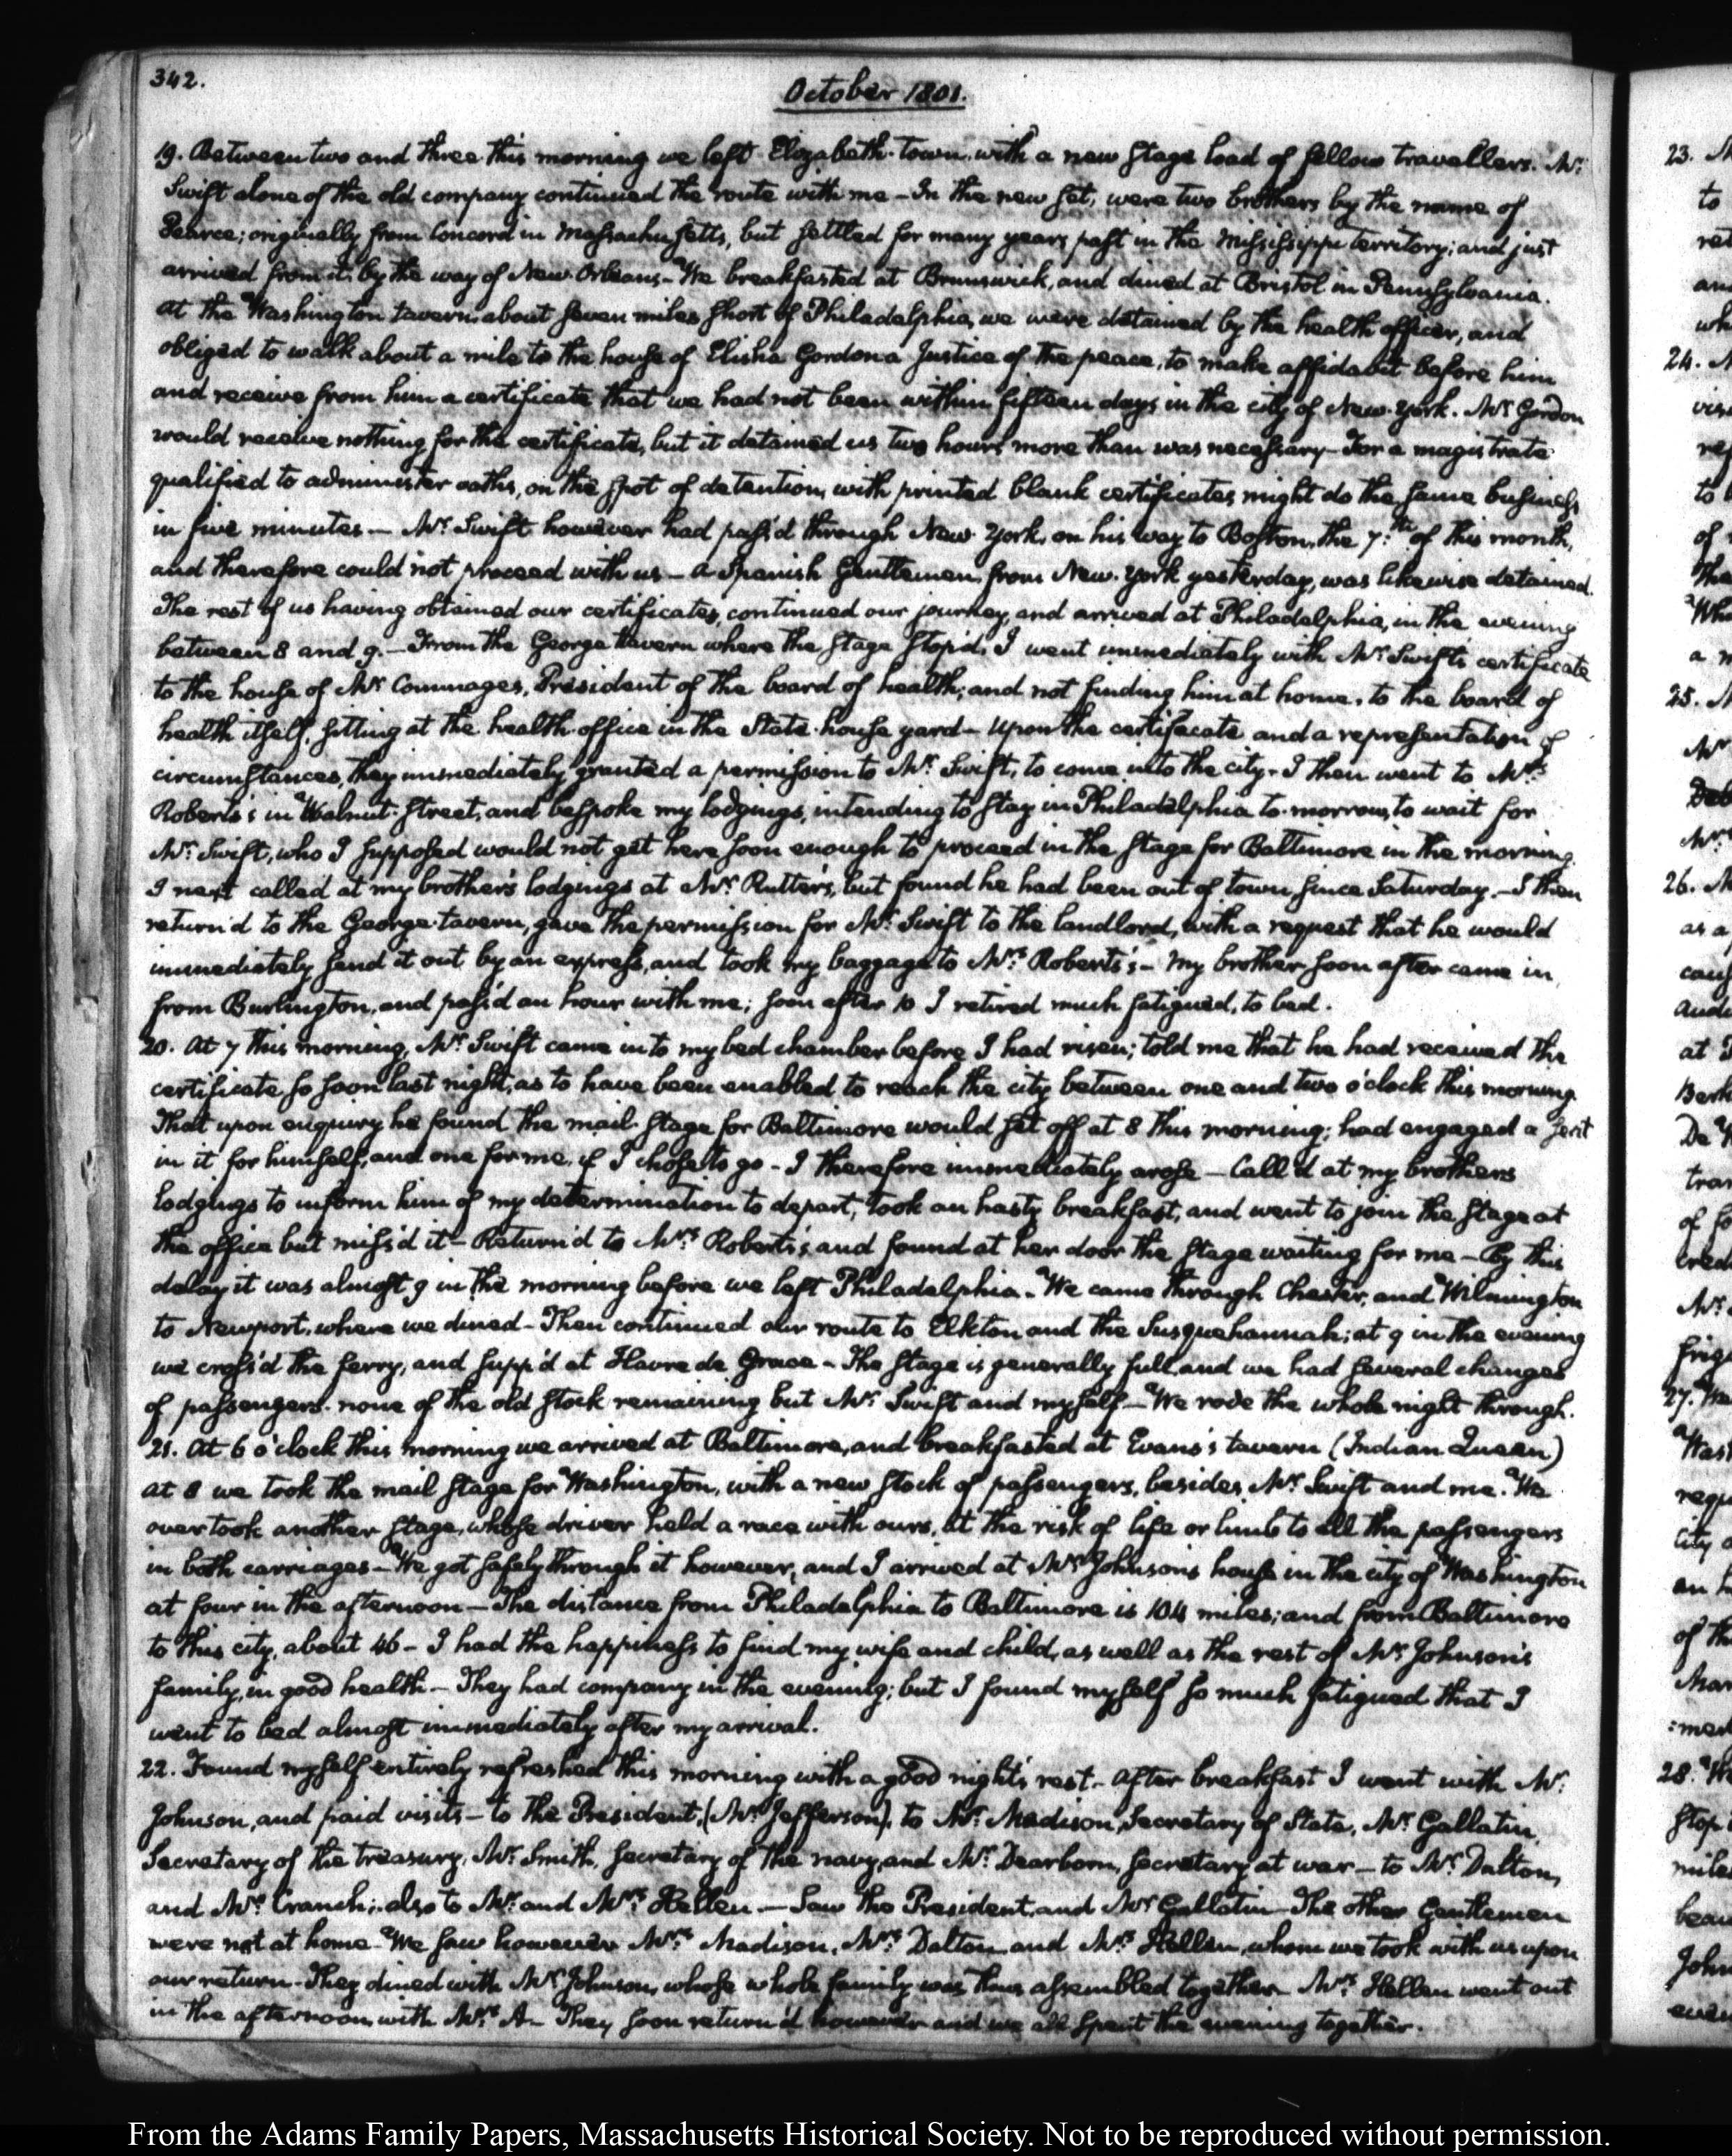 342.
October 1801.
19. Between two and three this morning we left Elizabeth-town, with a new stage load of fellow travellers. Mr:
Swift alone of the old company continued the route with me – In the new set, were two brothers by the name of
Pearce; originally from Concord in Massachusetts, but settled for many years past in the Mississippi territory; and just
arrived from it, by the way of New-Orleans – We breakfasted at Brunswick, and dined at Bristol in Pennsylvania.
At the Washington tavern, about seven miles short of Philadelphia, we were detained by the health officer, and
obliged to walk about a mile to the house of Elisha Gordon a Justice of the peace, to make affidavit before him
and receive from him a certificate that we had not been within fifteen days in the city of New-York. Mr. Gordon
would receive nothing for the certificate, but it detained us two hours more than was necessary – For a magistrate
qualified to administer oaths, on the spot of detention, with printed blank certificates might do the same business
in five minutes – Mr. Swift however had pass'd through New-York, on his way to Boston, the 7:th of this month,
and therefore could not proceed with us – A Spanish Gentleman, from New-York yesterday, was likewise detained.
The rest of us having obtained our certificates, continued our journey, and arrived at Philadelphia, in the evening
between 8 and 9. – From the George tavern where the stage stop'd, I went immediately with Mr. Swift's certificate
to the house of Mr. Commages, President of the board of health; and not finding him at home, to the board of
health itself, sitting at the health-office in the State-house yard – Upon the certificate and a representation of
circumstances, they immediately granted a permission to Mr. Swift, to come into the city – I then went to Mrs.
Roberts's in Walnut-Street, and bespoke my lodgings, intending to stay in Philadelphia to-morrow, to wait for
Mr. Swift, who I supposed would not get here soon enough to proceed in the stage for Baltimore in the morning.
I next called at my brother's lodgings at Mr. Rutter's, but found he had been out of town since Saturday. – I then
return'd to the George-tavern, gave the permission for Mr. Swift to the landlord, with a request that he would
immediately send it out by an express, and took my baggage to Mrs. Roberts's – My brother soon after came in
from Burlington, and pass'd an hour with me; soon after 10 I retired much fatigued, to bed.
20. At 7 this morning, Mr. Swift came into my bed chamber before I had risen; told me that he had received the
certificate so soon last night, as to have been enabled to reach the city between one and two o'clock this morning.
That upon enquiry he found the mail-stage for Baltimore would set off at 8 this morning; had engaged a seat
in it for himself, and one for me, if I chose to go – I therefore immediately arose – Call'd at my brothers
lodgings to inform him of my determination to depart, took an hasty breakfast, and went to join the stage at
the office but miss'd it – Return'd to Mrs. Roberts's, and found at her door the stage waiting for me – By this
delay it was almost 9 in the morning before we left Philadelphia – We came through Chester, and Wilmington
to Newport, where we dined – Then continued our route to Elkton and the Susquehannah; at 9 in the evening
we cross'd the ferry, and supp'd at Havre de Grace – The stage is generally full, and we had several changes
of passengers – none of the old stock remaining but Mr. Swift and myself – We rode the whole night through.
21. At 6 o'clock this morning we arrived at Baltimore, and breakfasted at Evans's tavern (Indian Queen)
at 8 we took the mail stage for Washington, with a new stock of passengers, besides Mr. Swift and me. We
overtook another stage, whose driver held a race with ours, at the risk of life or limb to all the passengers
in both carriages – We got safely through it however, and I arrived at Mr. Johnson's house in the city of Washington
at four in the afternoon – The distance from Philadelphia to Baltimore is 104 miles; and from Baltimore
to this city, about 46 – I had the happiness to find my wife and child, as well as the rest of Mr. Johnson's
family, in good health – They had company in the evening; but I found myself so much fatigued that I
went to bed almost immediately after my arrival.
22. Found myself entirely refreshed this morning with a good night's rest – After breakfast I went with Mr.
Johnson, and paid visits – to the President, (Mr. Jefferson), to Mr. Madison, Secretary of State, Mr. Gallatin,
Secretary of the treasury, Mr. Smith, Secretary of the navy, and Mr. Dearborn, Secretary at war – to Mr. Dalton,
and Mr. Cranch; also to Mr. and Mrs. Hellen – Saw the President, and Mr. Gallatin – The other Gentlemen
were not at home – We saw however Mrs. Madison, Mrs. Dalton and Mrs. Hellen, whom we took with us upon
our return – They dined with Mr. Johnson, whose whole family was thus assembled together – Mrs. Hellen went out
in the afternoon, with Mrs. A – They soon return'd however and we all spent the evening together.
23.
to
24.
25.
26.
as a
at
27.
28.
From the Adams Family Papers, Massachusetts Historical Society. Not to be reproduced without permission.